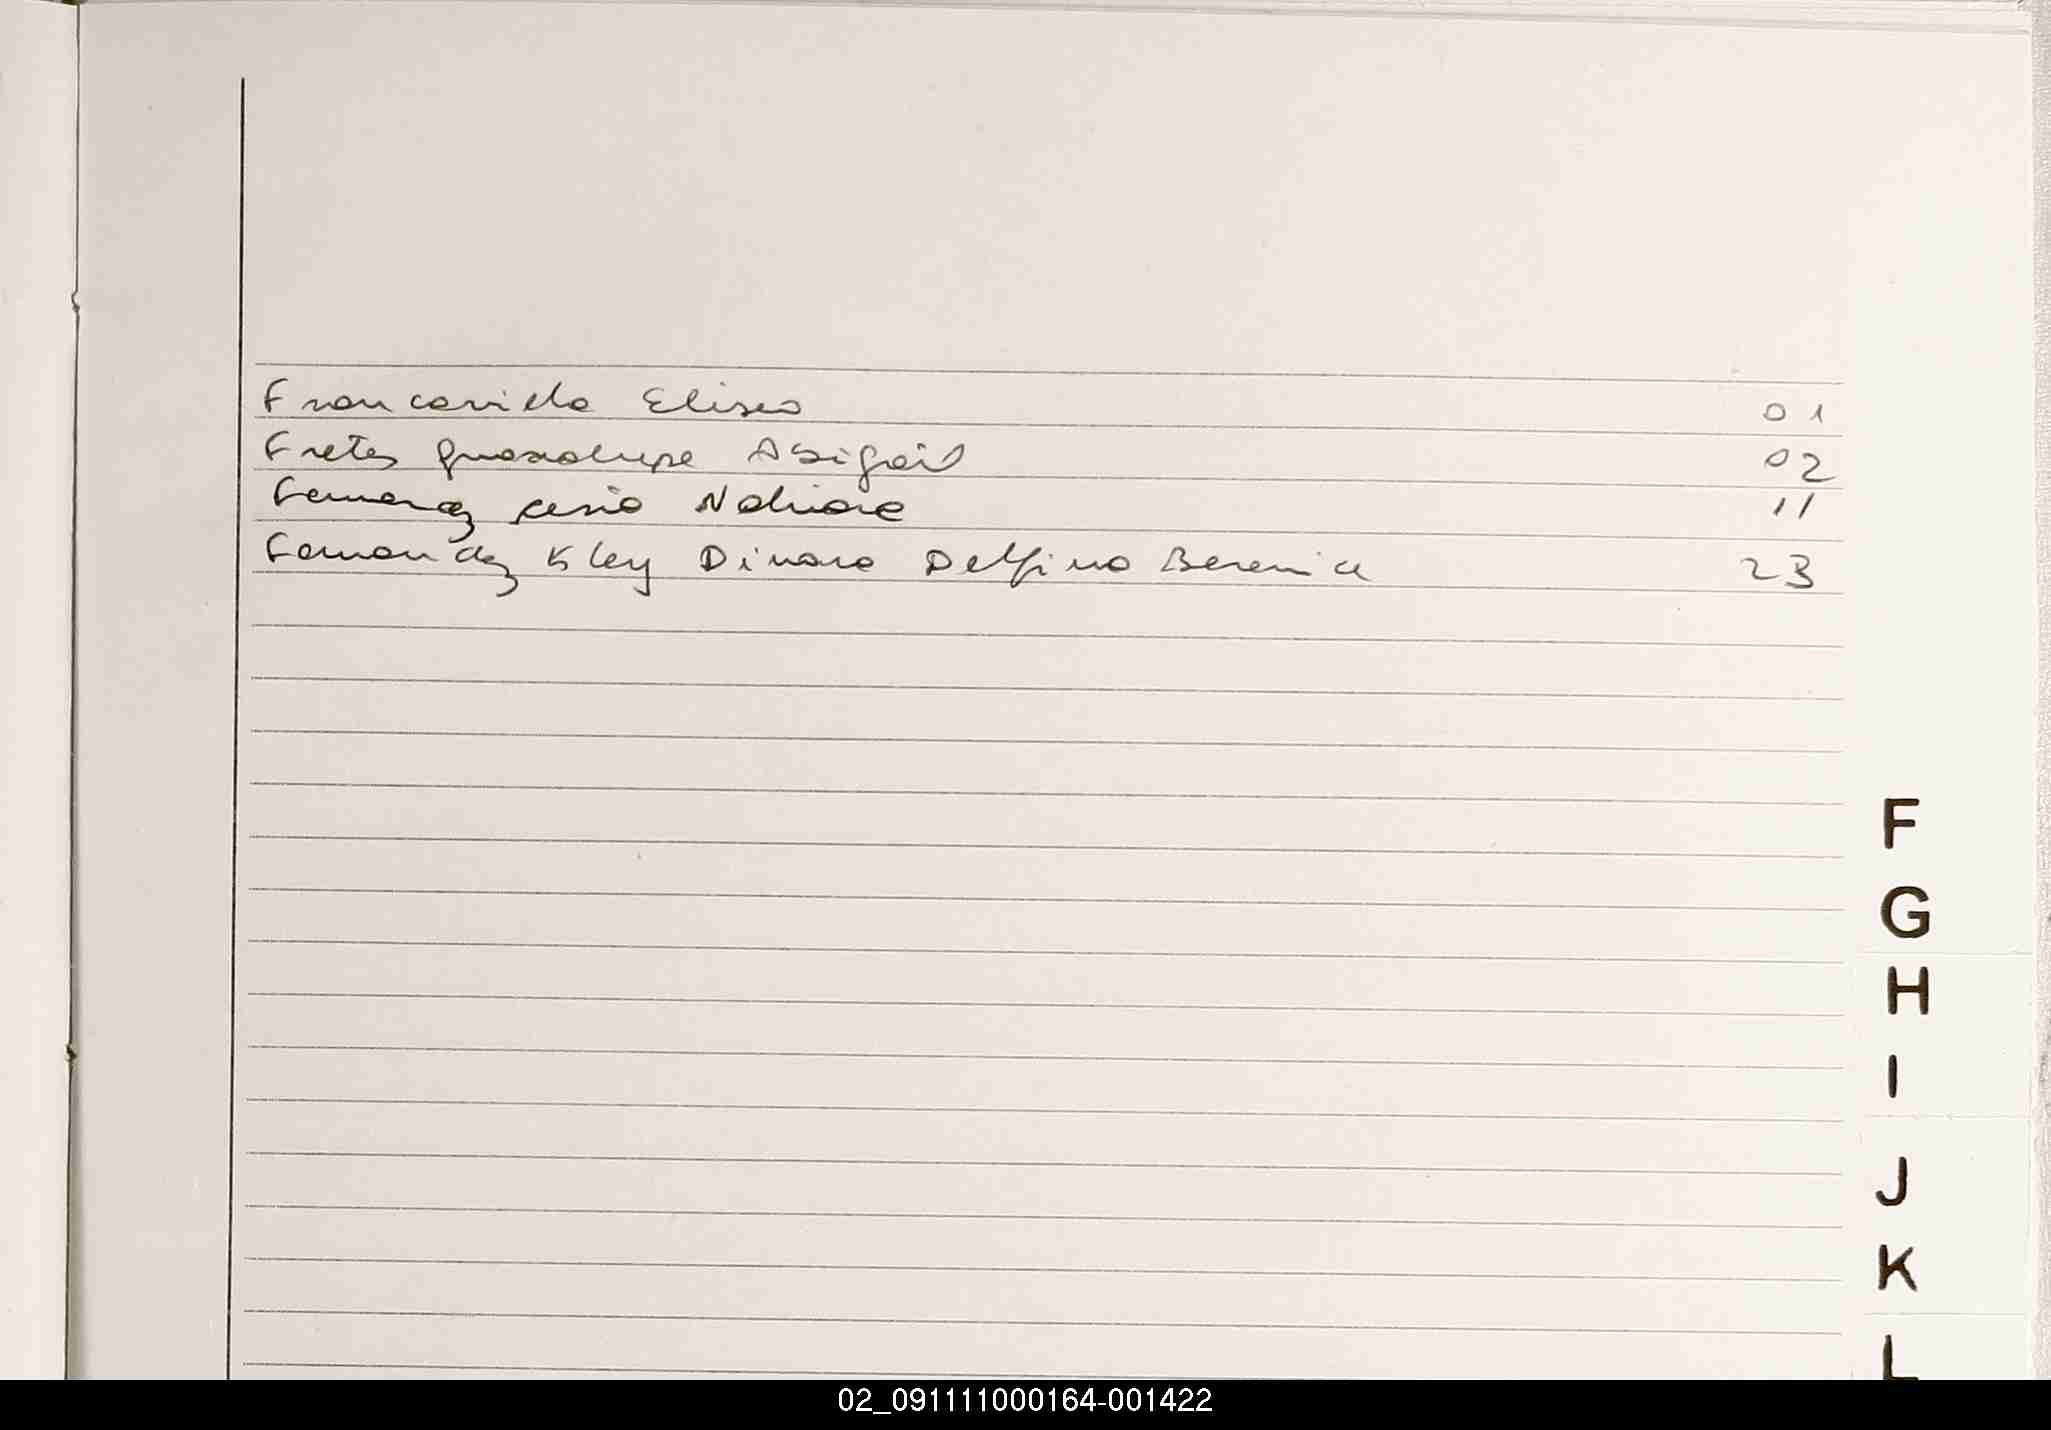 Francavilla Eliseo 01
Fretes Guadalupe Abigail 02
Fernandez 11
Fernandez Kley Dinora Delfina Berenice 23
F
G
H
I
J
K
L
02_091111000164-001422